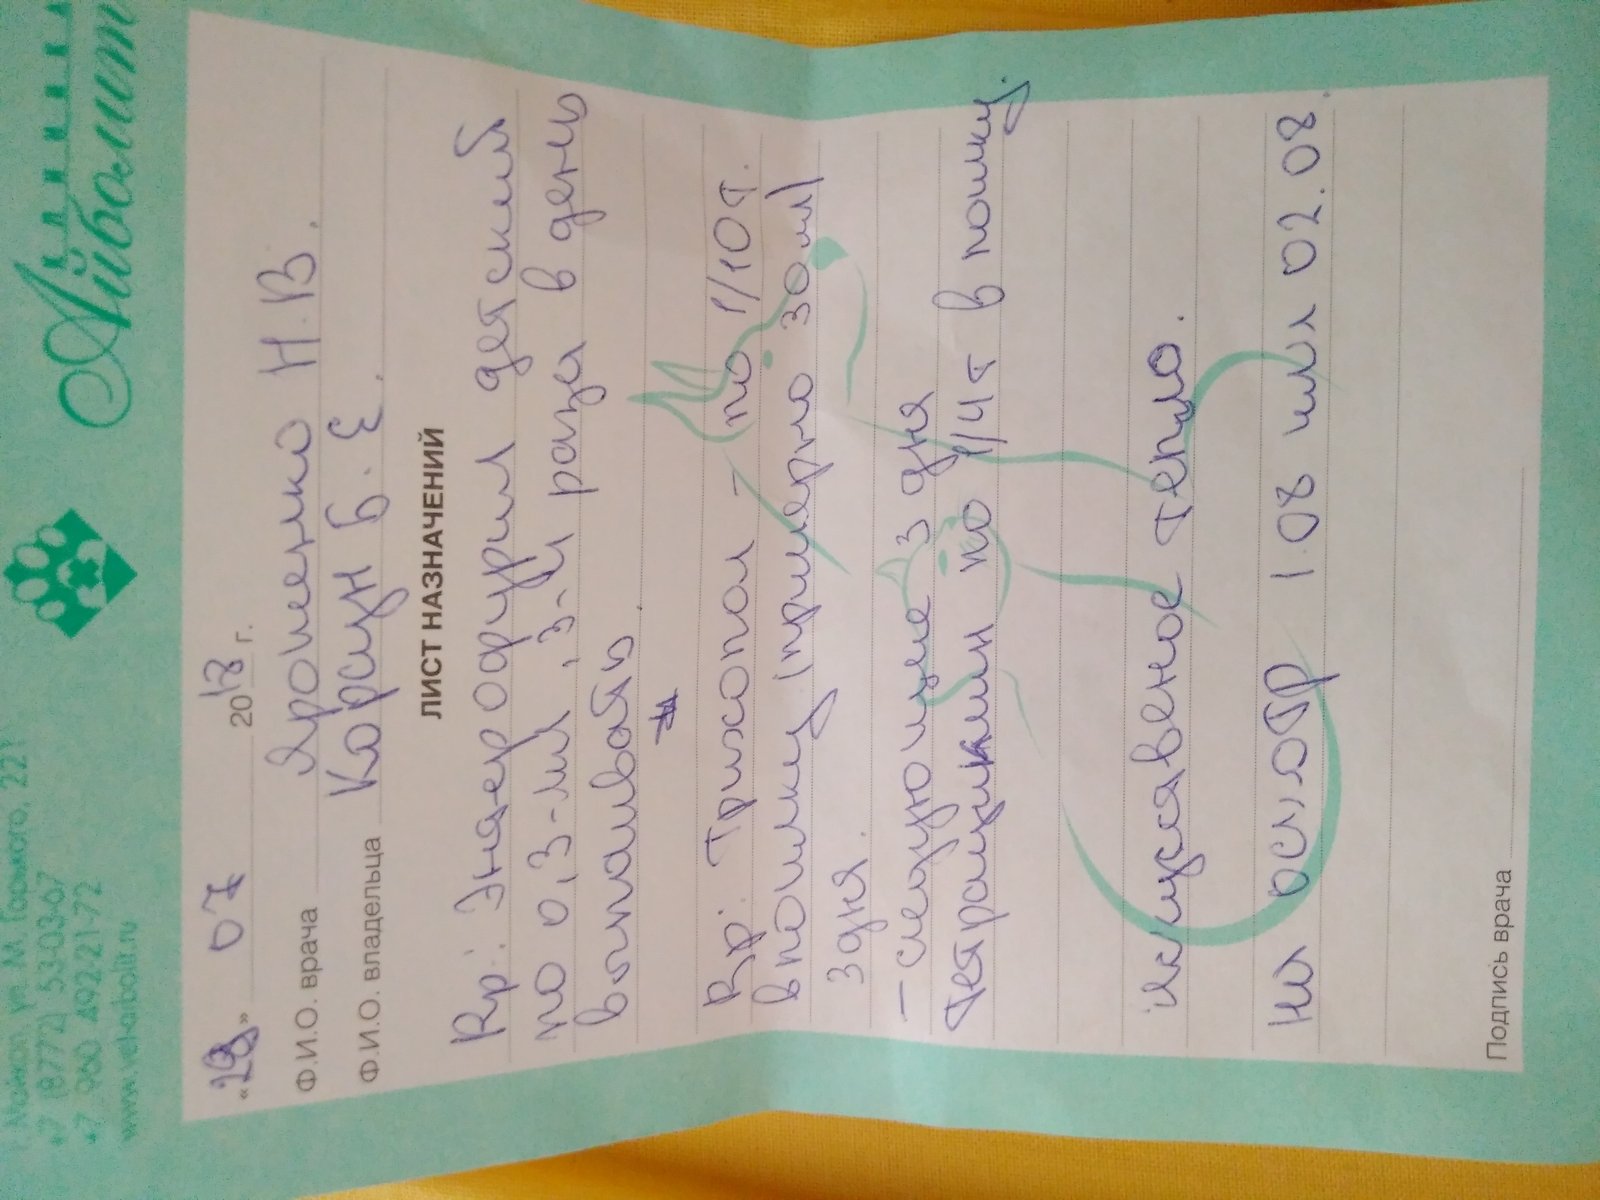 Айболит
г. Майкоп ул. М. Горького, 22
+7 (8772) 53-03-67
+7 960 492-21-72
www.vet-aibolit.ru
«29» 07 2018 г.
Ф.И.О. врача Ярошенко Н.В.
Ф.И.О. владельца Карацун Б.Е.
ЛИСТ НАЗНАЧЕНИЙ
Rp: Энтерофурил детский
по 0,3-мл, 3-4 раза в день
выпаивать.
Rp: Трихопол - по 1/10т.
в поилку (примерно 30мл)
3дня.
- следующие 3 дня
тетрациклин по 1/4т в поилку.
искуставеное тепло.
на осмотр 1.08 или 02.08.
Подпись врача